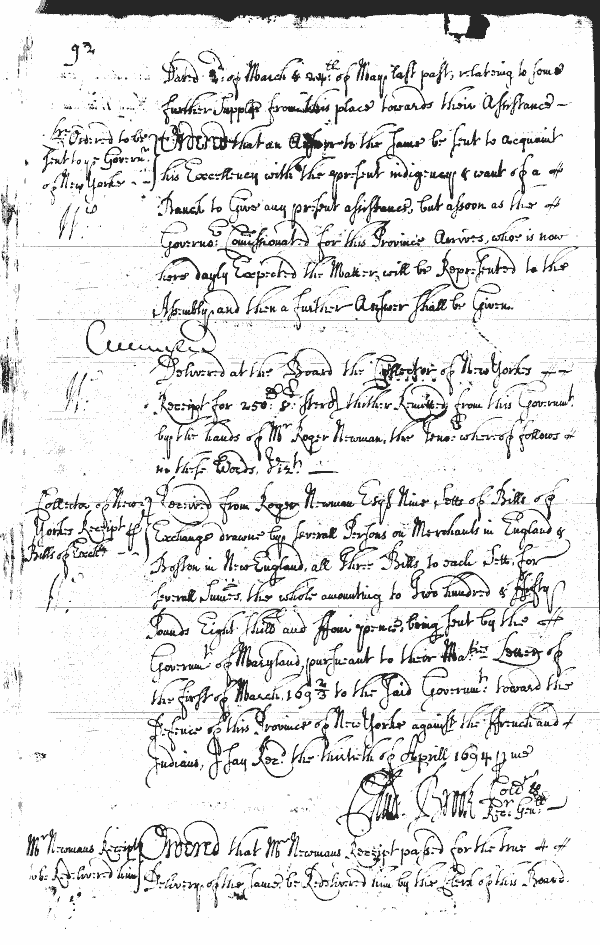 92
Dated 2d of March & 24th of May last past, relating to some
further Supply from this place towards their Assistance –
Ordered to be
sent to ye Govern:r
of New Yorke
Ordered that an Answer to the same be sent to acquaint
his Excellency with the present indigency & want of a
Branch to Give any present assistance, but assoon as the
Governo:r Comissionated for this Province Arrives, who is now
here dayly Expected the Matter will be Represented to the
Assembly, and then a further Answer shall be Given.
Delivered at the Board the Collector of New Yorkes
Receipt for 250: 8: sterl thither Remitted from this Governt.
by the hands of Mr Roger Newman, the Teno:r whereof follows
in these Words, Vizt. —
Collector of New
Yorkes Receipt of
Bills of Excha
Received from Roger Newman Esqr Nine setts of Bills of
Exchange drawne by severall Persons on Merchants in England &
Boston in New England, all three Bills to each sett, for
severall Sumes, the whole amounting to Two hundred & ffifty
Pounds Eight shill and ffour pence, being sent by the
Governmt of Maryland, pursuant to their Maties Letter of
the first of March, 169 2/3 to the said Governm:t toward the
Defence of this Province of New Yorke against the ffrench and
Indians, I say Recd. the thirtieth of Aprill 1694 p me
Brook Colr &
Rec: Genll
Mr Newmans Receipt
to be Redelivered him
Ordered that Mr Newmans Receipt passed for the true
Delivery of the same, be Redelivered him by the Clerk of this Board.